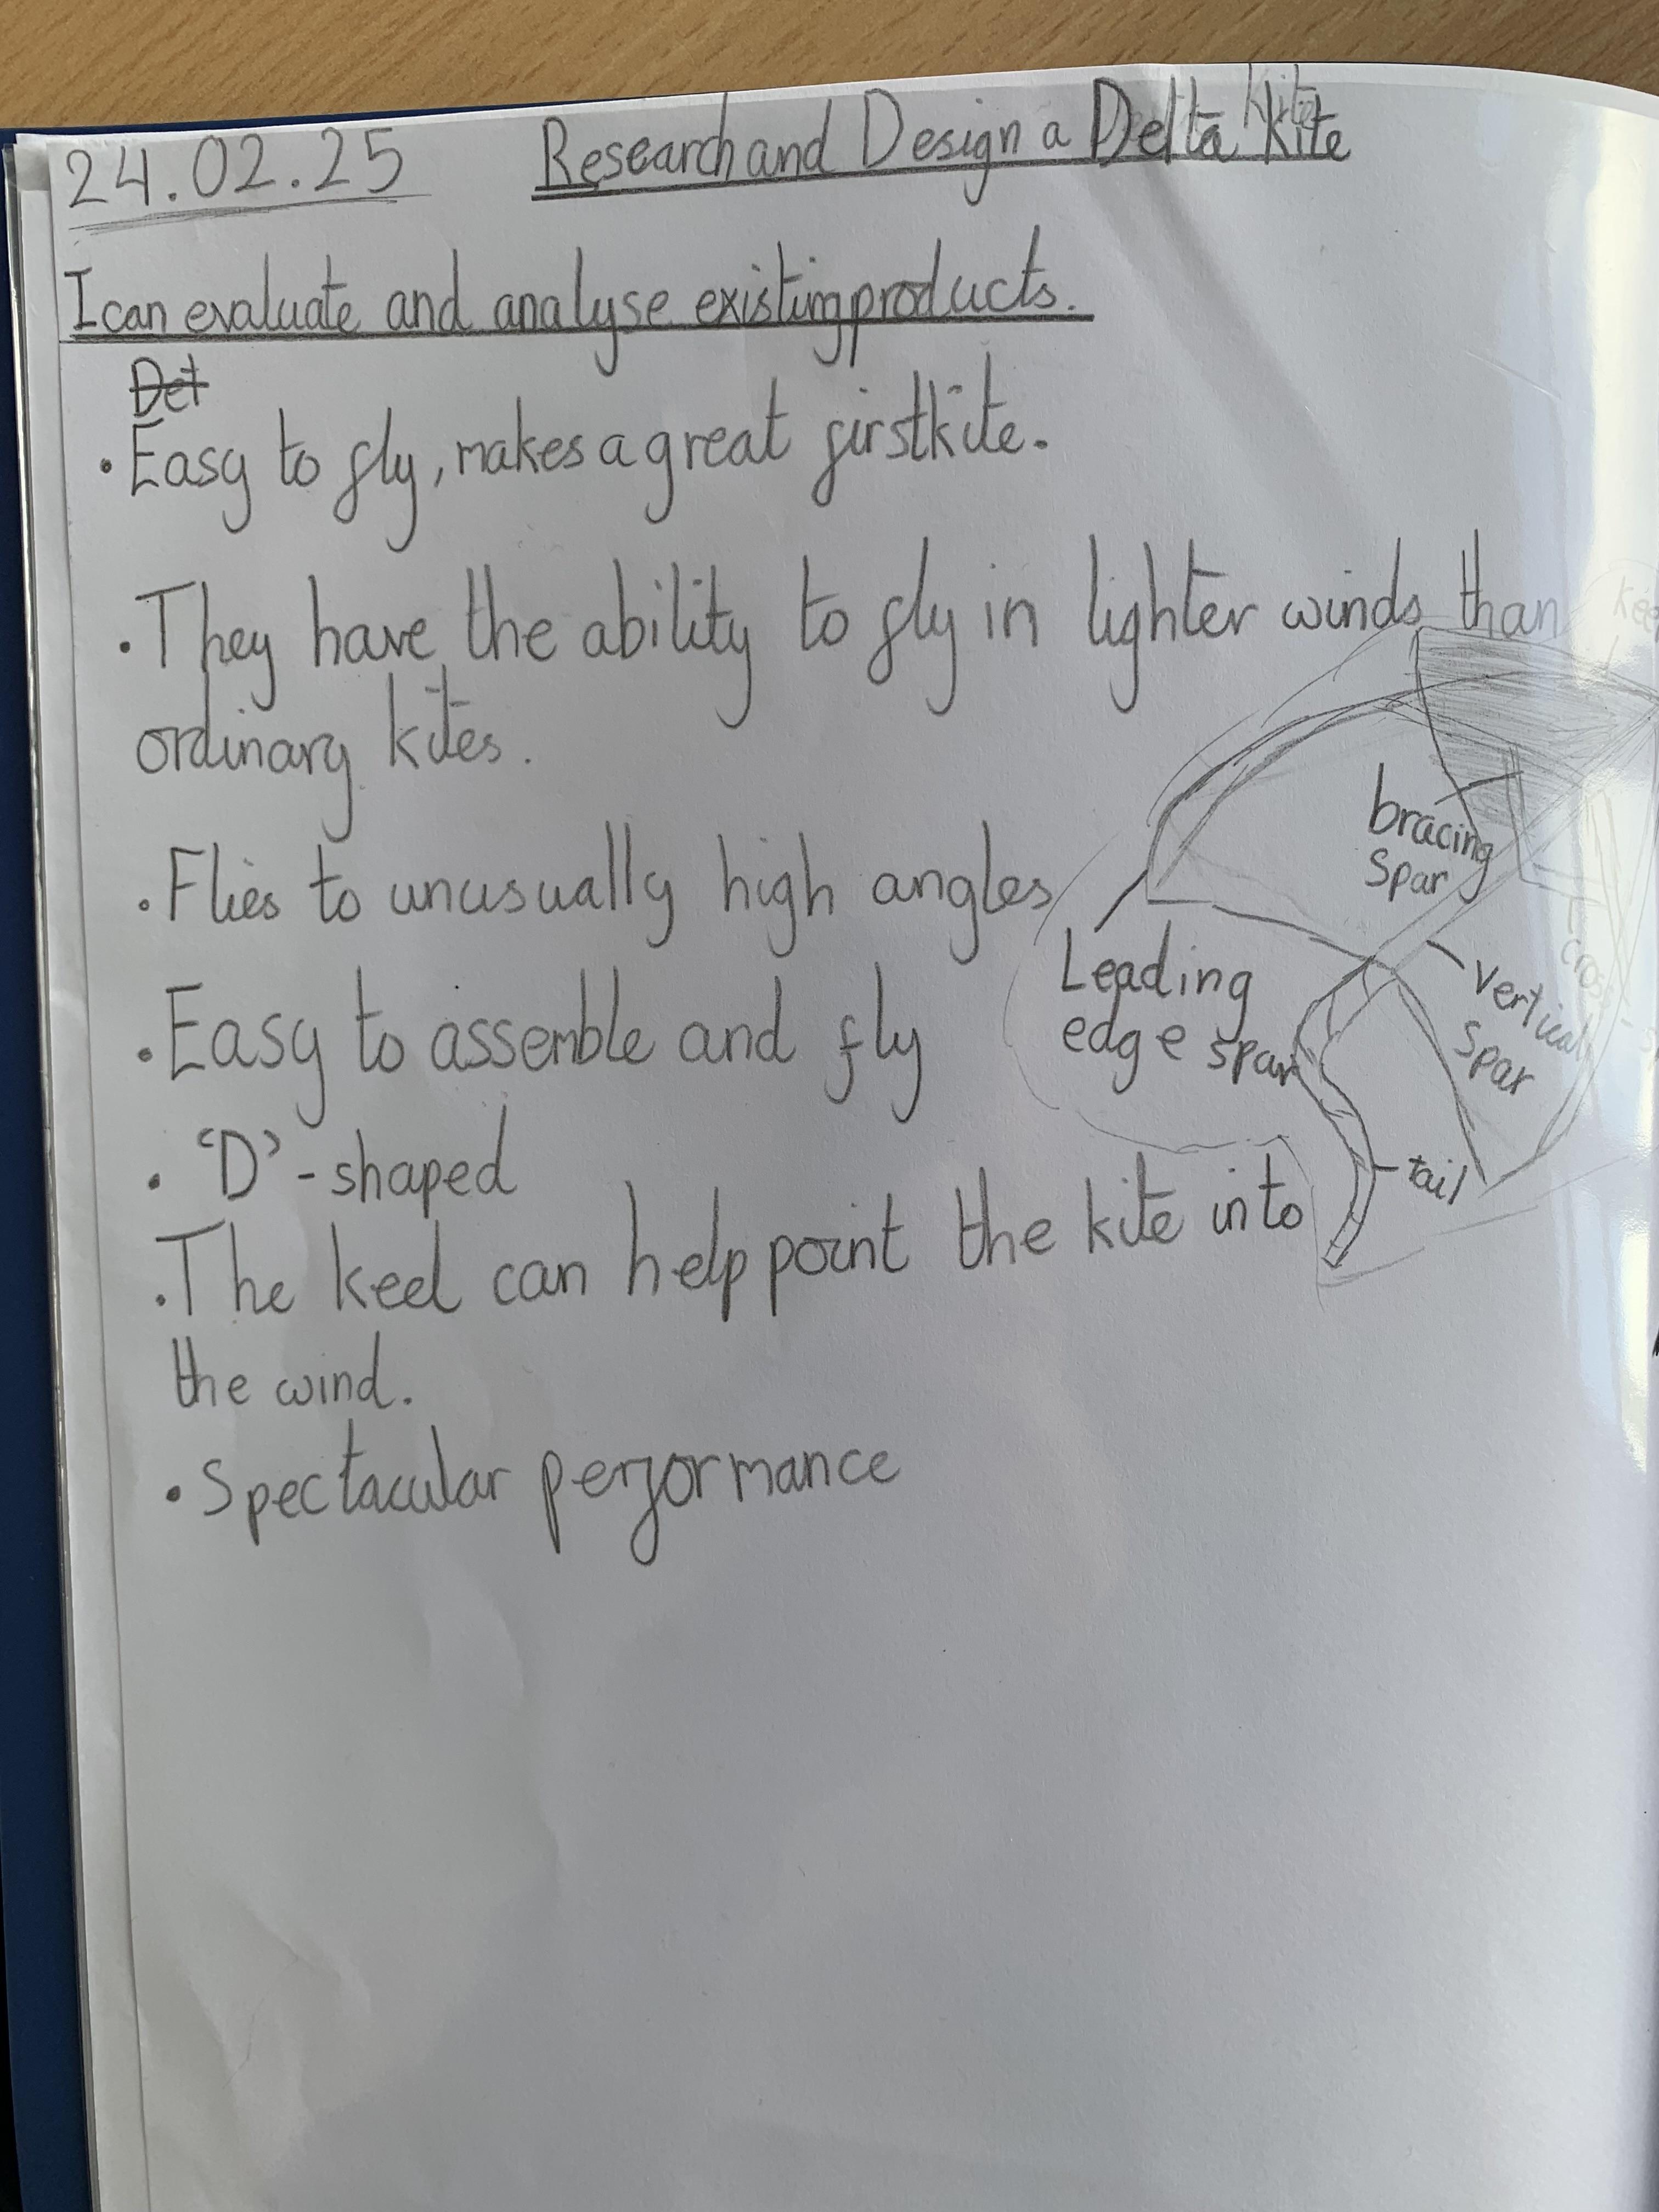 24.02.25 Research and Design a Delta Kite
I can evaluate and analyse existing products.
Det
• Easy to fly, makes a great first kite.
• They have the ability to fly in lighter winds than
ordinary kites.
• Flies to unusually high angles
• Easy to assemble and fly
• 'D'-shaped
• The keel can help point the kite into
the wind.
• Spectacular performance
bracing
spar
Leading
edge spar
vertical
spar
cross-
tail